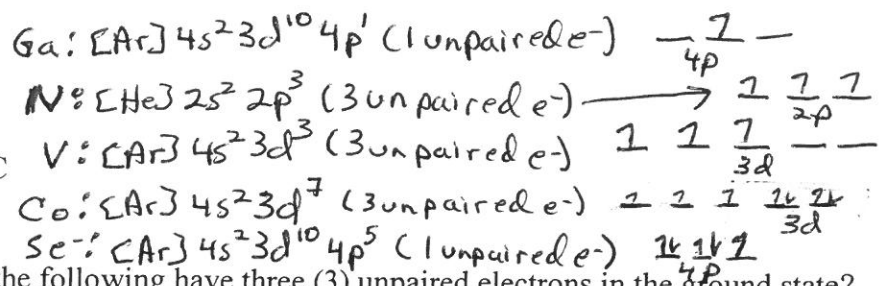 Ga: [Ar] 4s² 3d¹⁰ 4p¹ (1 unpaired e-) _ 1 _
4p
N: [He] 2s² 2p³ (3 unpaired e-) → 1 1 1
2p
V: [Ar] 4s² 3d³ (3 unpaired e-) 1 1 1 _ _
3d
Co: [Ar] 4s² 3d⁷ (3 unpaired e-) 1 1 1 1↓ 1↓
3d
Se⁻: [Ar] 4s² 3d¹⁰ 4p⁵ (1 unpaired e-) 1↓ 1↓ 1
4p
he following have three (3) unpaired electrons in the ground state?